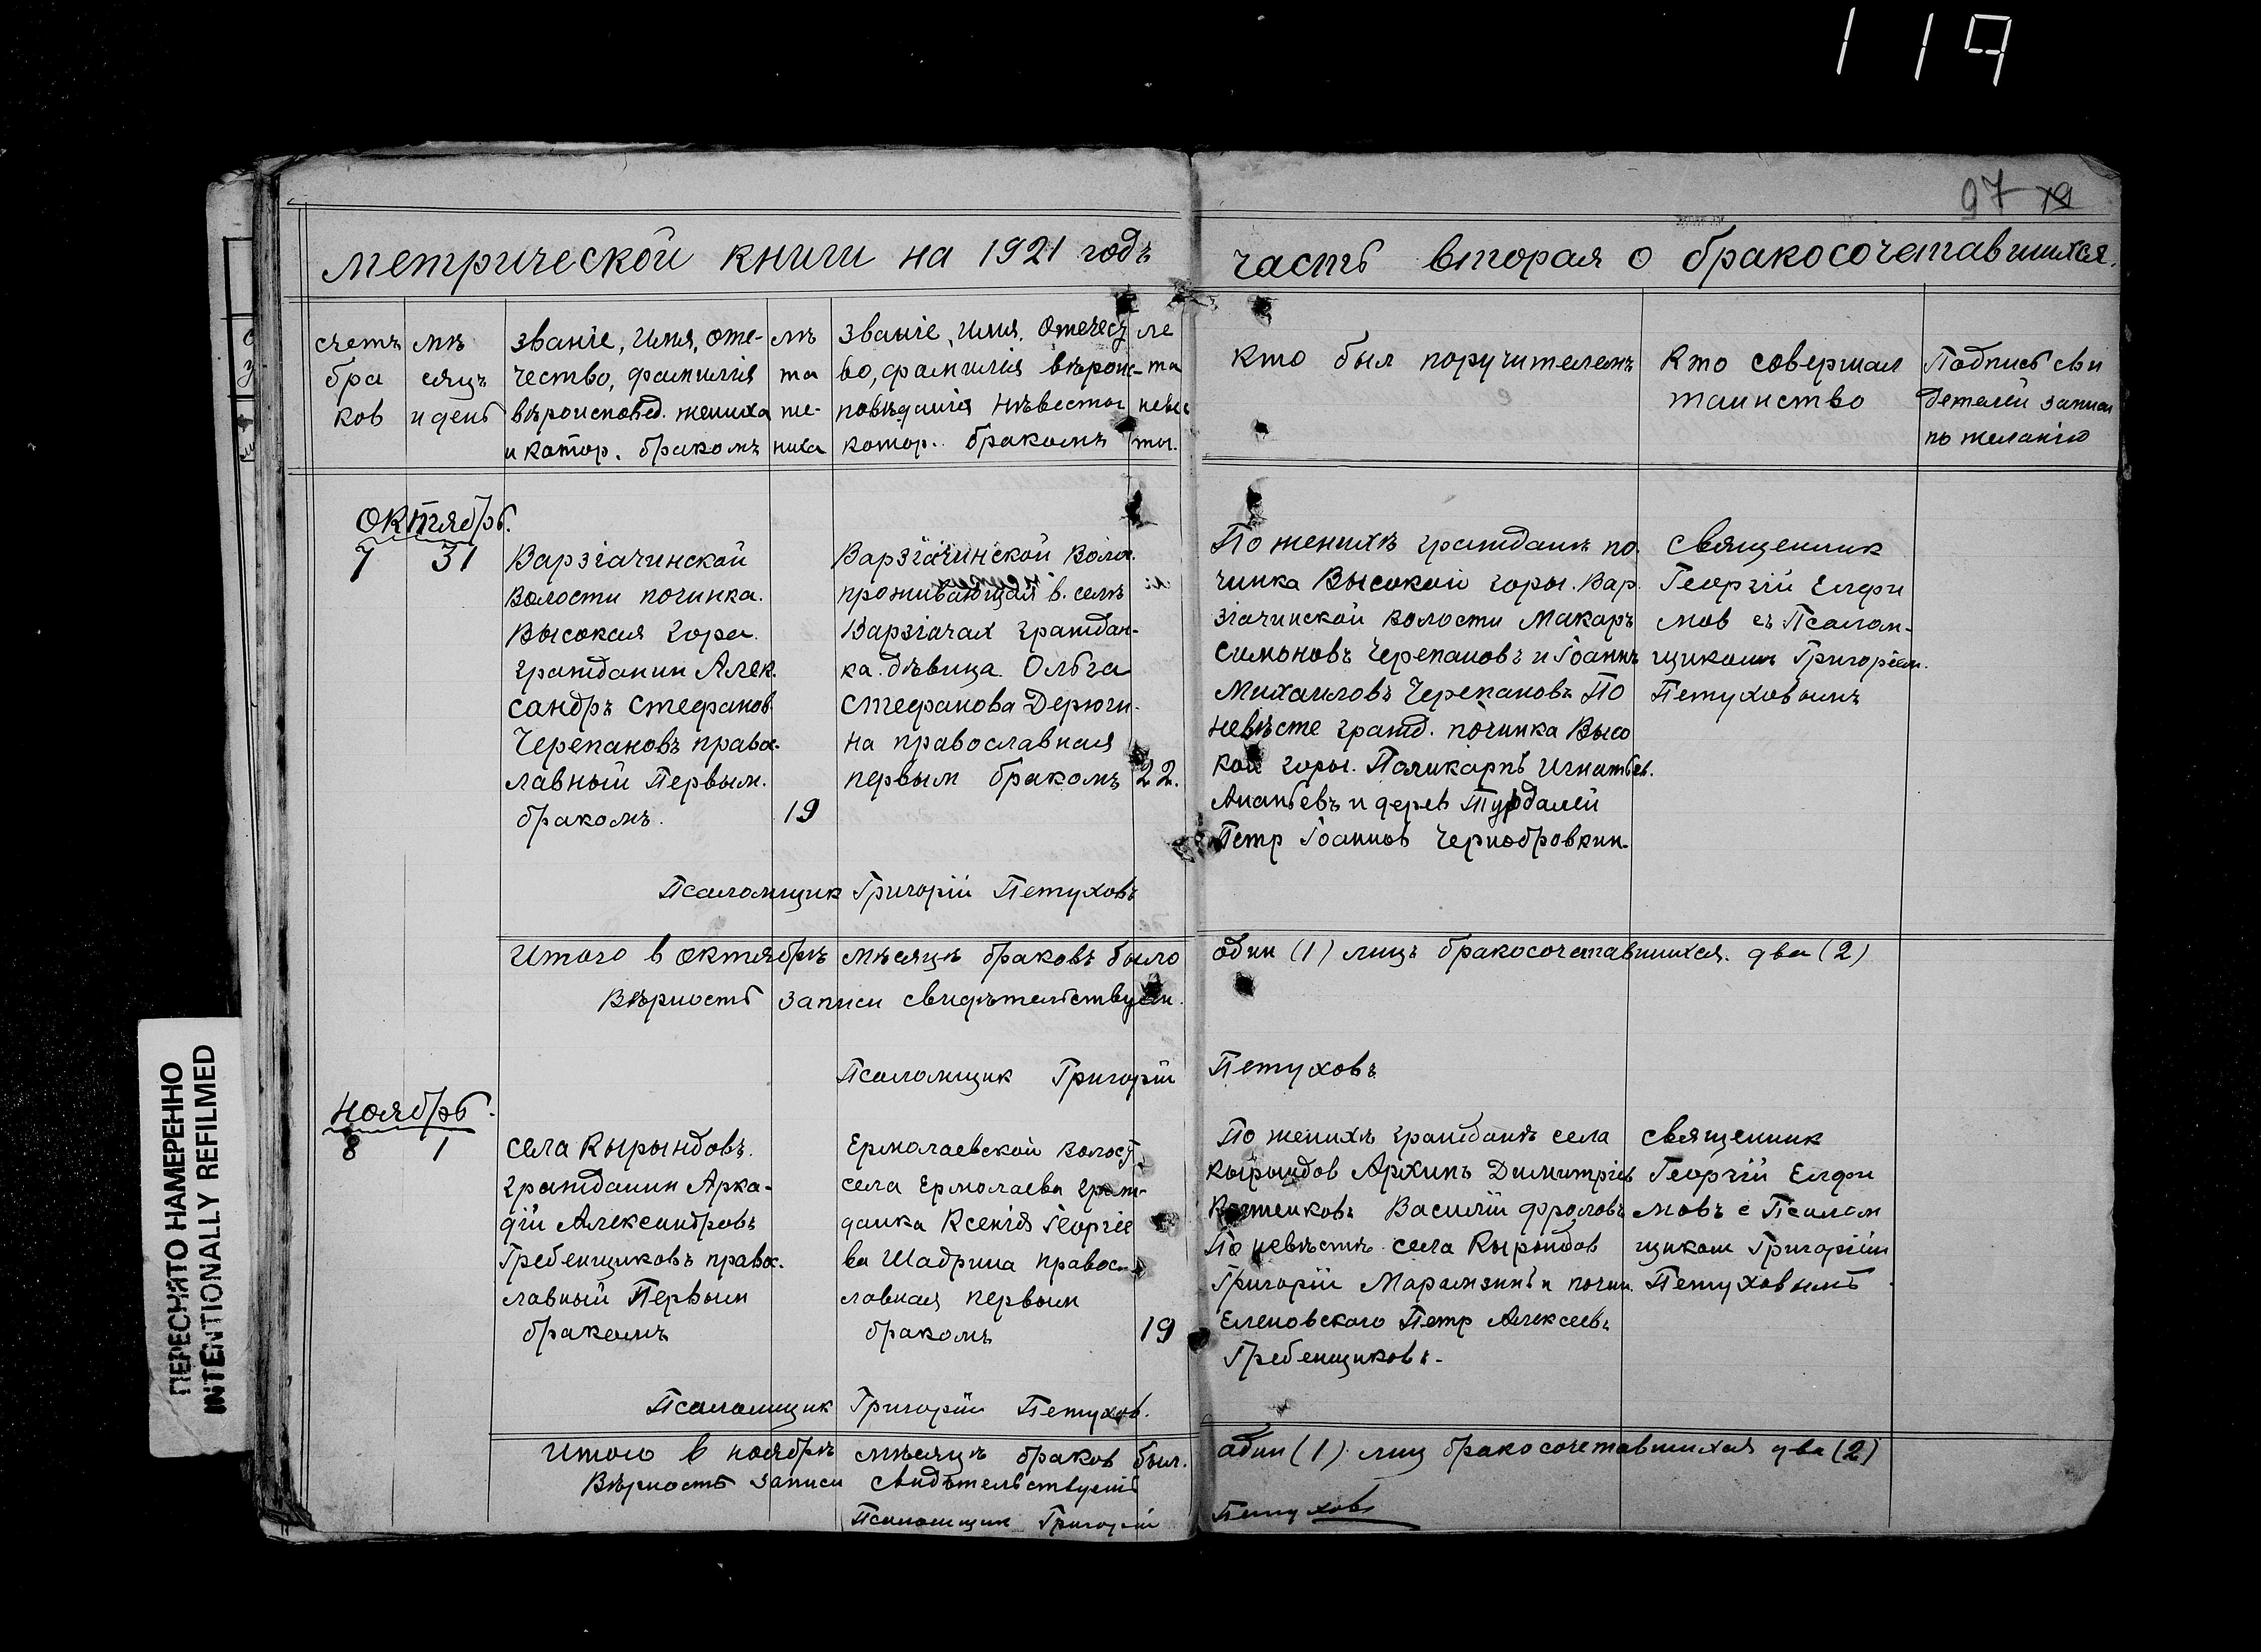 119
97
метрической книги на 1921 годъ
часть вторая о бракосочетавшихся.
счетъ
бра
ков
мѣ
сяцъ
и день
званіе, имя, оте-
чество, фамилія
вѣроисповѣд. жениха
и котор. бракомъ
лѣ
та
же-
ниха
званіе, имя, отечест
во, фамилія вѣрои-
повѣданія невѣсты
котор. бракомъ
ле
та
невес
ты.
Кто был поручителемъ
Кто совершал
таинство
Подпись сви
детелей записи
по желанію
Октябрь.
7 31
Варзіачинской
волости починка.
Высокая гора.
гражданин Алек.
сандръ Стефанов
Черепановъ правос-
лавный Первым.
бракомъ.
19
Варзіачинской воло.
проживающая в. селѣ
Варзіачах граждан-
ка. дѣвица. Ольга
Стефанова Дерюги-
на православная
первым бракомъ
22.
По женихѣ граждане по.
чинка Высокой горы. Вар.
зіачинской волости Макаръ
Симоновъ Черепановъ и Іоаннъ
Михаиловъ Черепановъ По
невѣсте гражд. починка Высо
кой горы. Поликарпъ Игнатьев.
Ананьевъ и дерев
Петр Іоаннов Чернобровкин
Священник
Георгій Елфи
мов съ Псалом-
щиком Григоріем.
Петуховымъ
Псаломщик Григорій Петуховъ
Итого в октябрѣ мѣсяцѣ браковъ было
один (1) лицъ бракосочетавшихся. два (2)
Вѣрность записи свидѣтельствуем.
Псаломщик Григорій
Петуховъ
Ноябрь.
8 1
села Кырындовъ.
гражданин Арка-
дій Александровъ
Гребенщиковъ правос.
лавный Первым
бракомъ
Ермолаевской волост.
села Ермолаева граж-
данка Ксенія Георгіе
ва Шадрина правос-
лавная первым
бракомъ
19
По женихѣ граждане села
Кырындов Архипъ Димитріев
Василій Фроловъ
По невѣстѣ села Кырындов
Григорій и почин.
Еленовского Петр Алексеевъ
Гребенщиковъ.
Священник
Георгій Елфи
мовъ с Псалом
щиком Григоріем
Петуховымъ
Псаломщик Григорій Петухов.
Итого в ноябрѣ мѣсяцѣ браков был.
один (1) лиц бракосочетавшихся два (2)
Вѣрность записи свидѣтельствуетъ
Псаломщик Григорій
Петухов
ПЕРЕСНЯТО НАМЕРЕННО
INTENTIONALLY REFILMED